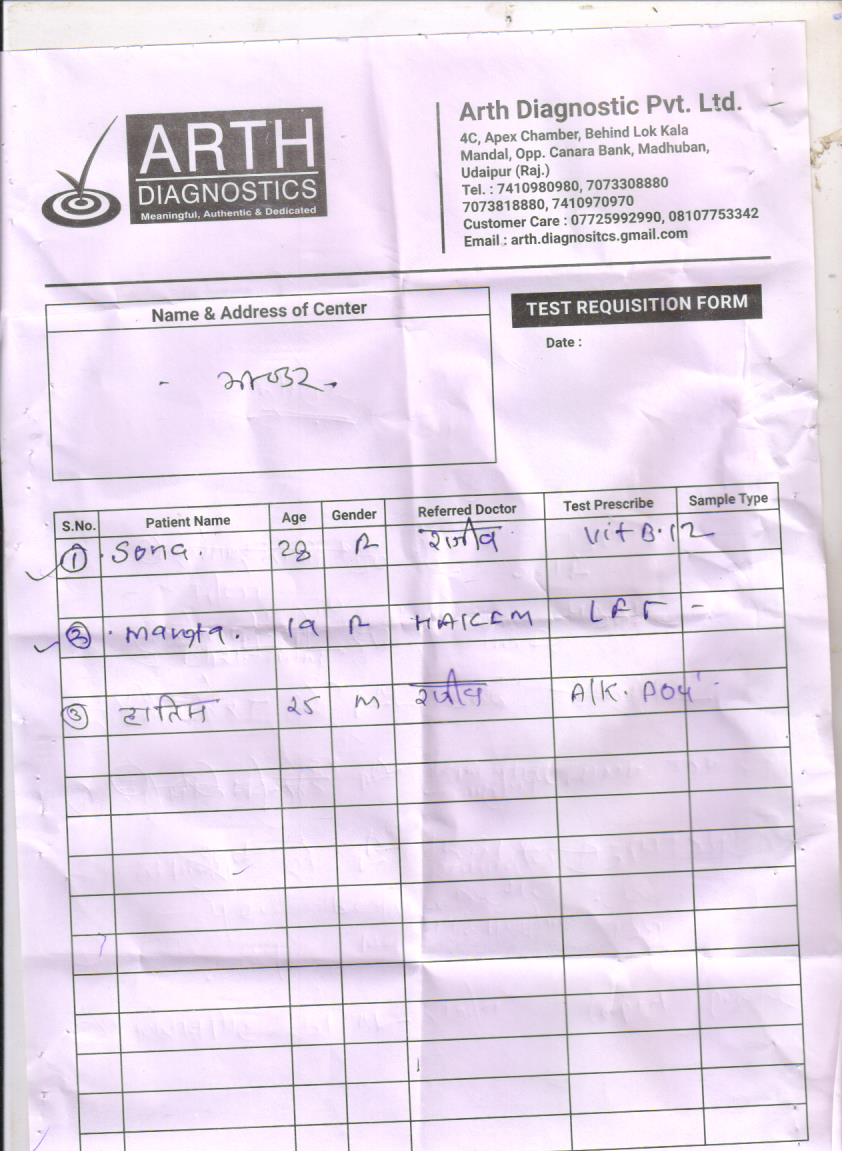 ARTH
DIAGNOSTICS
Meaningful, Authentic & Dedicated
Arth Diagnostic Pvt. Ltd.
4C, Apex Chamber, Behind Lok Kala
Mandal, Opp. Canara Bank, Madhuban,
Udaipur (Raj.)
Tel. : 7410980980, 7073308880
7073818880, 7410970970
Customer Care : 07725992990, 08107753342
Email : arth.diagnositcs.gmail.com
Name & Address of Center
TEST REQUISITION FORM
Date :
S.No. Patient Name Age Gender Referred Doctor Test Prescribe Sample Type
1 Sona. 28 राजीव Vit B.12
2 Mamta. 19 HAKEEM LFT -
3 हातिम 25 M राजीव A/K. PO4